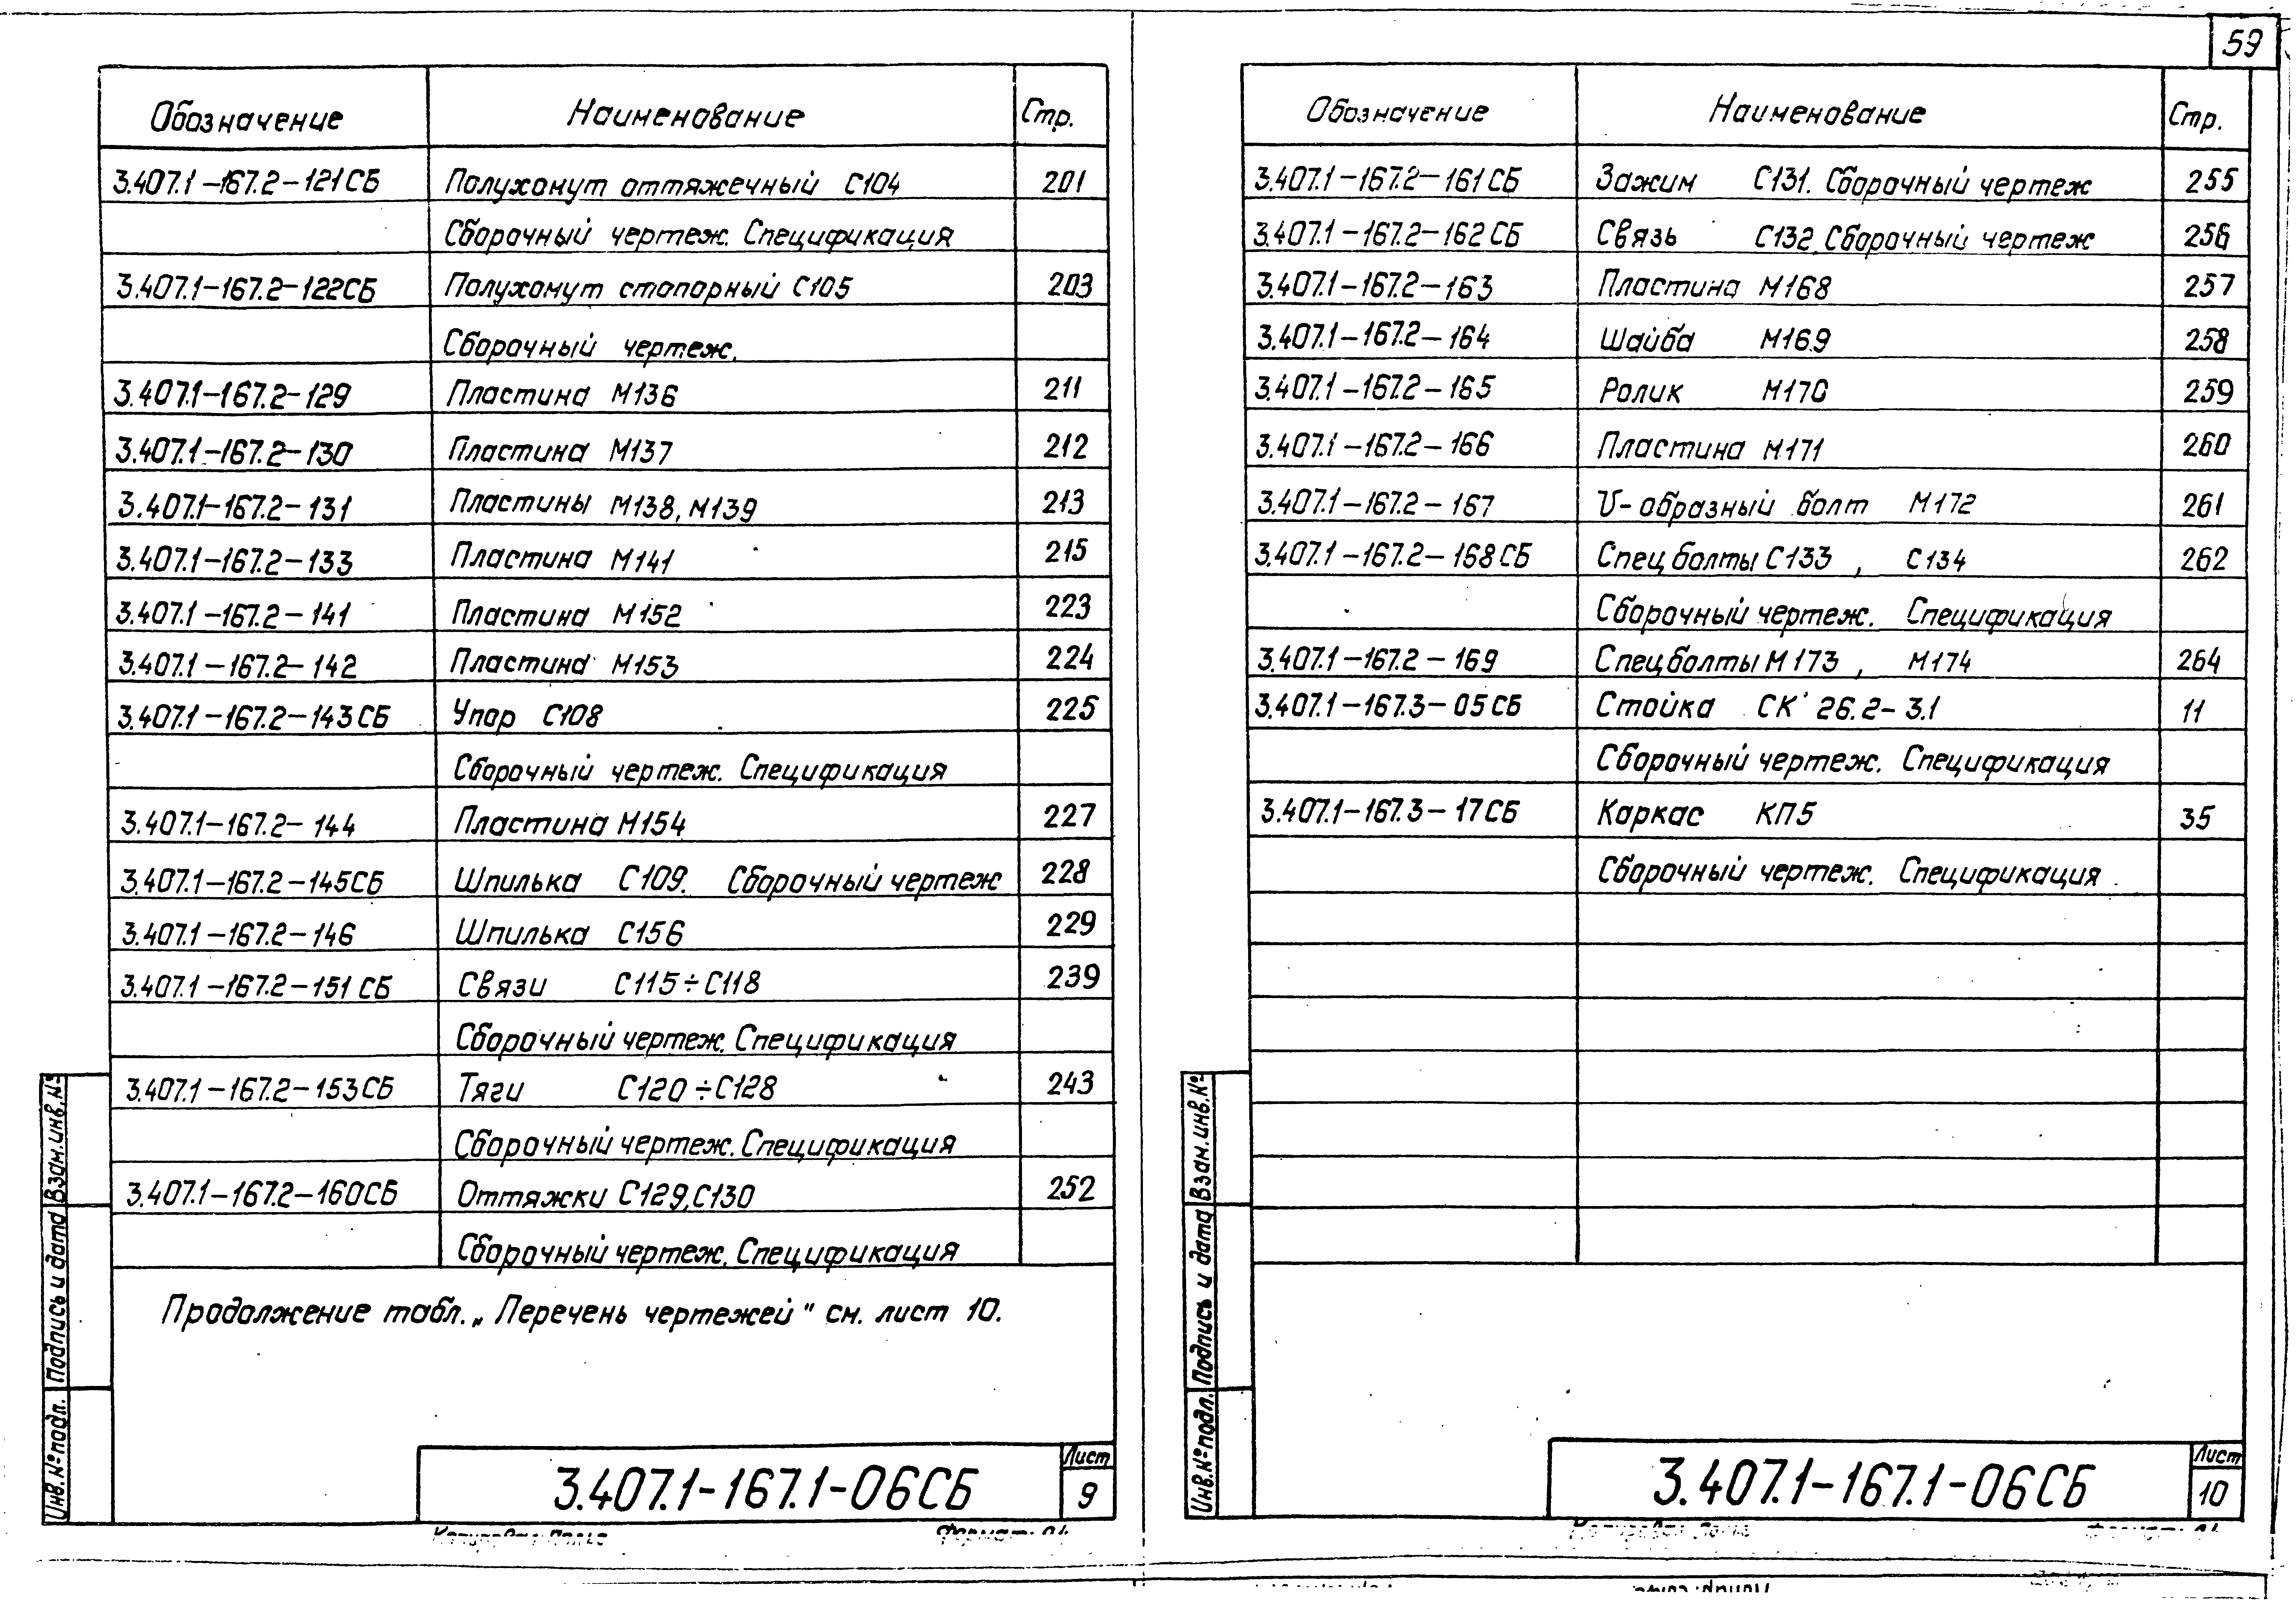 59
Обозначение Наименование Стр.
3.407.1-167.2-121СБ Полухомут оттяжечный С104 201
Сборочный чертеж. Спецификация
3.407.1-167.2-122СБ Полухомут стопорный С105 203
Сборочный чертеж.
3.407.1-167.2-129 Пластина М136 211
3.407.1-167.2-130 Пластина М137 212
3.407.1-167.2-131 Пластины М138, М139 213
3.407.1-167.2-133 Пластина М141 215
3.407.1-167.2-141 Пластина М152 223
3.407.1-167.2-142 Пластина М153 224
3.407.1-167.2-143СБ Упор С108 225
Сборочный чертеж. Спецификация
3.407.1-167.2-144 Пластина М154 227
3.407.1-167.2-145СБ Шпилька С109. Сборочный чертеж 228
3.407.1-167.2-146 Шпилька С156 229
3.407.1-167.2-151СБ Связи С115÷С118 239
Сборочный чертеж. Спецификация
3.407.1-167.2-153СБ Тяги С120÷С128 243
Сборочный чертеж. Спецификация
3.407.1-167.2-160СБ Оттяжки С129, С130 252
Сборочный чертеж. Спецификация
Продолжение табл. „Перечень чертежей" см. лист 10.
Взам. инв. №
Подпись и дата
Инв. № подл.
3.407.1-167.1-06СБ
Лист
9
Обозначение Наименование Стр.
3.407.1-167.2-161СБ Зажим С131. Сборочный чертеж 255
3.407.1-167.2-162СБ Связь С132. Сборочный чертеж 256
3.407.1-167.2-163 Пластина М168 257
3.407.1-167.2-164 Шайба М169 258
3.407.1-167.2-165 Ролик М170 259
3.407.1-167.2-166 Пластина М171 260
3.407.1-167.2-167 U-образный болт М172 261
3.407.1-167.2-168СБ Спец болты С133, С134 262
Сборочный чертеж. Спецификация
3.407.1-167.2-169 Спецболты М173, М174 264
3.407.1-167.3-05СБ Стойка СК 26.2-3.1 11
Сборочный чертеж. Спецификация
3.407.1-167.3-17СБ Каркас КП5 35
Сборочный чертеж. Спецификация
Взам. инв. №
Подпись и дата
Инв. № подл.
3.407.1-167.1-06СБ
Лист
10